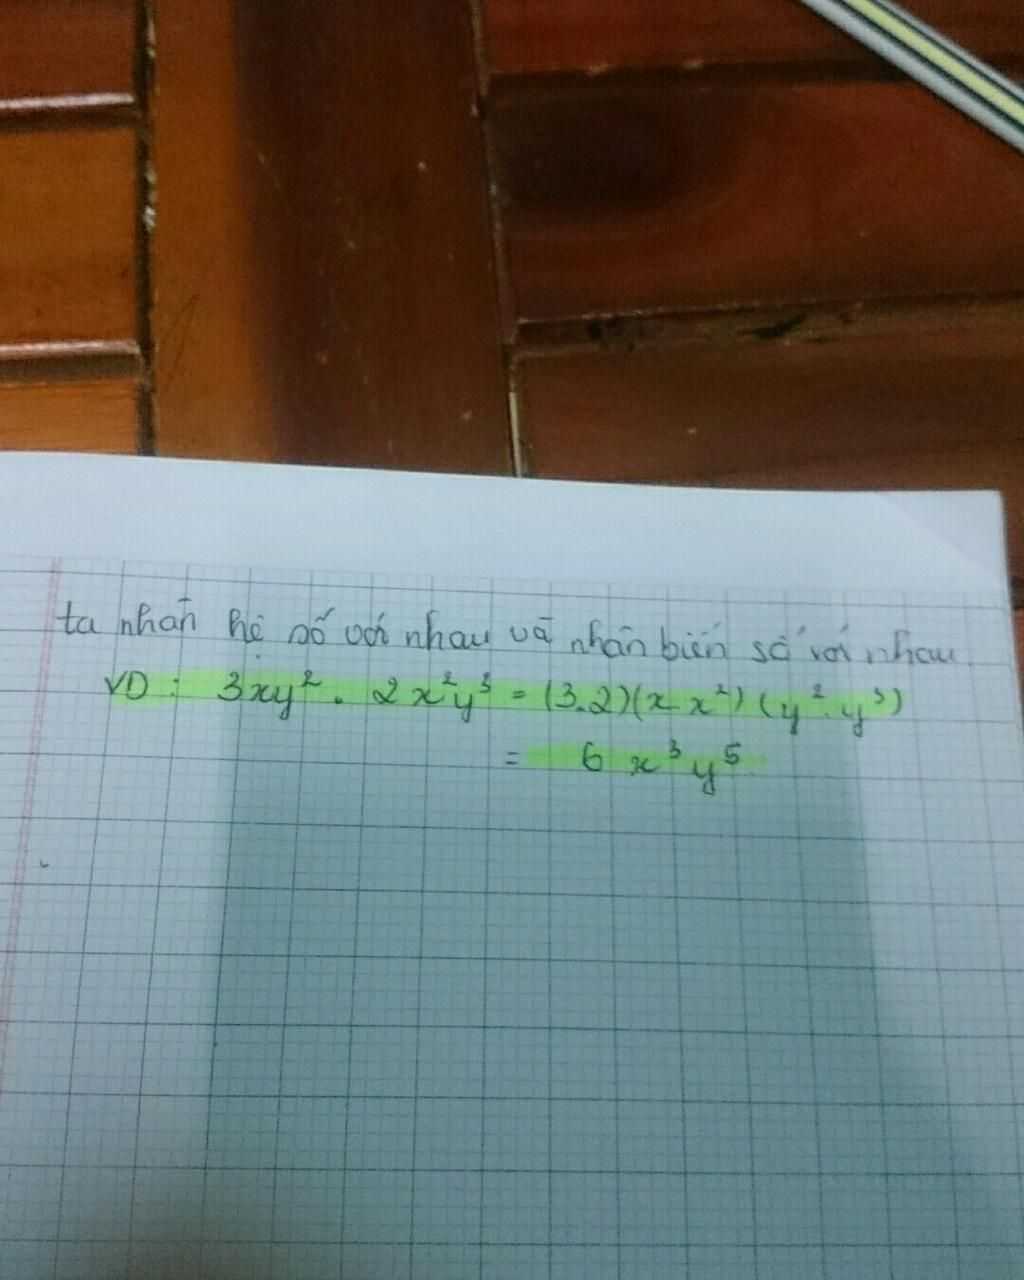 ta nhân hệ số với nhau và nhân biến số với nhau.
VD: 3xy² . 2x²y³ = (3.2)(x.x²)(y².y³)
= 6 x³y⁵